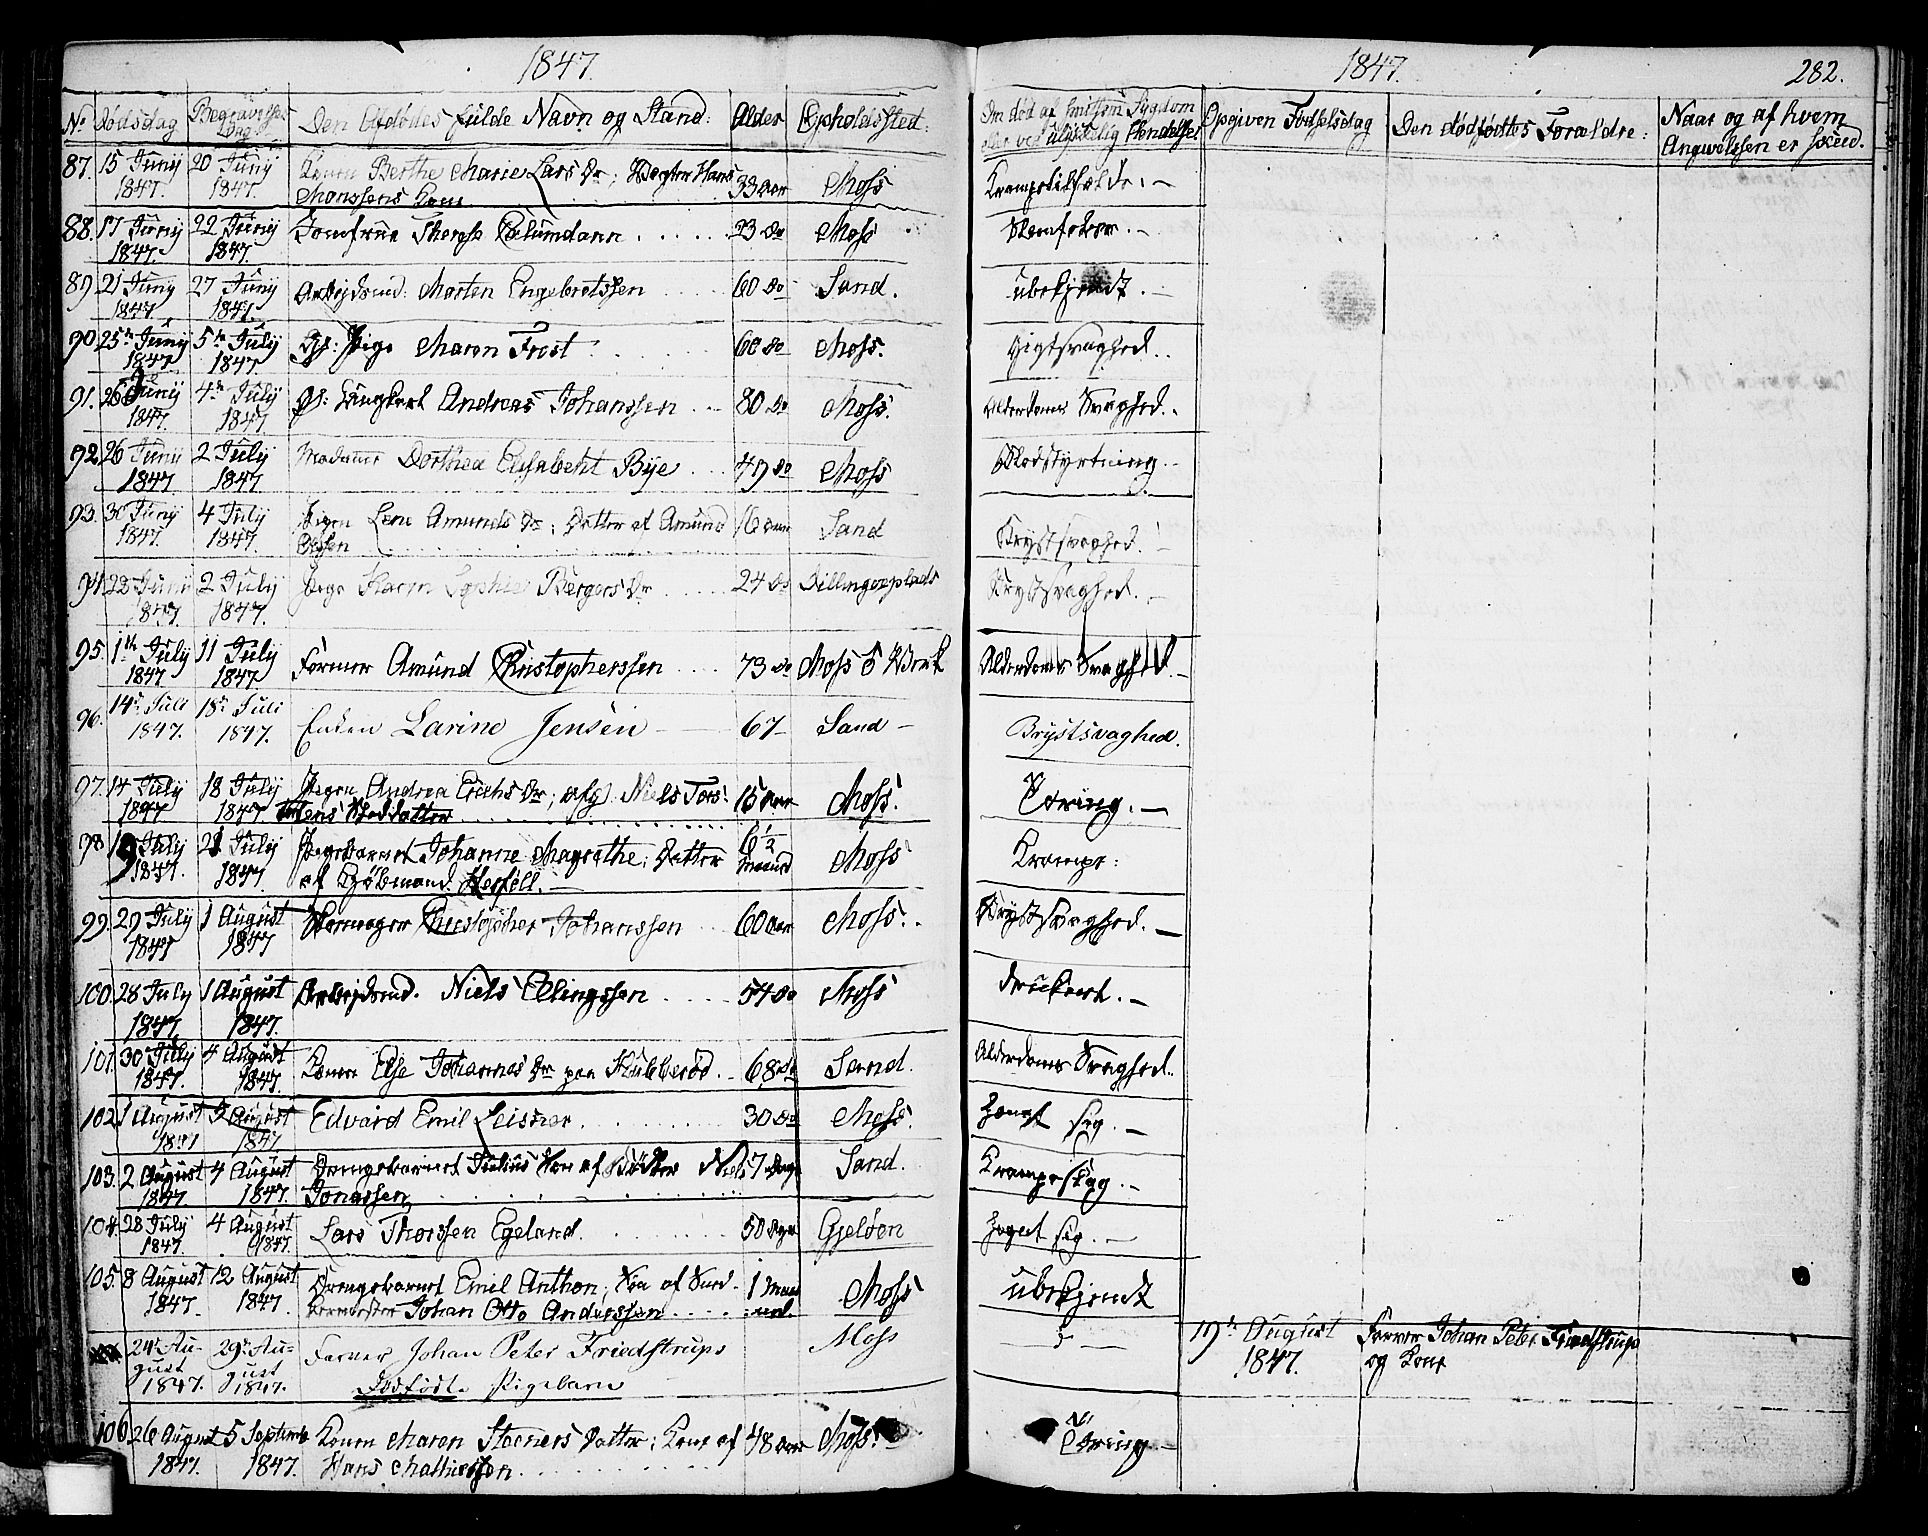 1847. 1847. 282.
No Dødsdag Begravelses Dag Den Afdødes fulde Navn og Stand: Alder Opholdssted: Om død af smitsom Sygdom Opgiven Fødselsdag Den dødfødtes Forældre: Naar og af hvem
eller ved ulykkelig Hendelse Angivelsen er skeed.
87. 15 Junij 20 Junij Konen Berthe Marie Lars Dr; Vægter Hans 33 Aar Moss Krampetilfælde. –
1847. 1847. Monssens Kone
88. 17 Junij 22 Junij Jomfrue Therese 23 Do Moss
1847. 1847.
89. 21 Junij 27 Junij Arbejdsmd: Morten Engebretssen 60 Do Sand. ubekjendt. –
1847. 1847.
90. 25de Junij 5te July Gl: Pige Maren Frost 60 Do Moss. Gigtsvaghed..
1847 1847
91. 26 Junij 4de July Gl: Andreas Johanssen 80 Do Moss. Alderdoms Svaghed..
1847. 1847.
92. 26 Junij 2 July Madame Dorthea Elisabeht Bye 49 Do Moss Blodstyrtning. –
1847 1847
93. 30 Junij 4 July Pigen Lene Amunds Dr; Datter af Amund 16 Aar Sand Brystsvaghed. –
1847. 1847. Olssen
94. 28 Junij 2 July Pige Karen Sophie Børgers Dr 24 Do Dillingøeplads Brystsvaghed. –
1847. 1847.
95. 1te July 11 July Former Amund Christopherssen 73 Do Moss Værk Alderdoms Svaghed. –
1847 1847
96. 14de Juli 18de Juli Enken Larine Jensen 67 – Sand – Brystsvaghed.
1847. 1847.
97. 14 July 18 July Pigen Andrea Erichs Dr; afg. Niels Tors- 15 Aar Moss. Tæring. –
1847 1847 tensens Steddatter
98. 19 July 21 July Pigebarnet Johanne Magrethe; Datter 6½ Moss Krampe:
1847. 1847. af Kjøbmand maaned
99. 29 July 1 August Christopher Johanssen 60 Aar Moss.. Brystsvaghed. –
1847 1847
100. 28 July 1 August Arbejdsmd. Niels Elingssen 54 Do Moss druknet. –
1847. 1847.
101. 30 July 4 August Konen Else Johannes Dr paa Kubberød. – 68 Do Sand. Alderdoms Svaghed..
1847. 1847.
102. 1 August 5 August Edvard Emil Leisner. 30 Do Moss. hængt sig. –
1847 1847
103. 2 August 4 August Drengebarnet Julius Søn af Bødker Niels 7 Dage Sand. Krampeslag. –
1847. 1847. Jonassen
104. 28 July 4 August Lars Thorssen Egeland. 50 Gjeløen hengt sig. –
1847. 1847.
105. 8 August 12 August Drengebarnet Emil Anthon; Søn af 1 maa- Moss ubekjendt
1847. 1847. Johan Otto Anderssen ned.
24de Au- 29de Au- Farver Johan Peter Friedstrups Moss 19de August Farver Johan Peter Friedstrup
gust gust Dødfødt Pigebarn 1847. og Kone
1847. 1847.
106. 26 August 5 Septembr Konen Maren Steeners Datter; Kone af 48 Aar Moss. Tæring –
1847. 1847. Hans Mathiessen